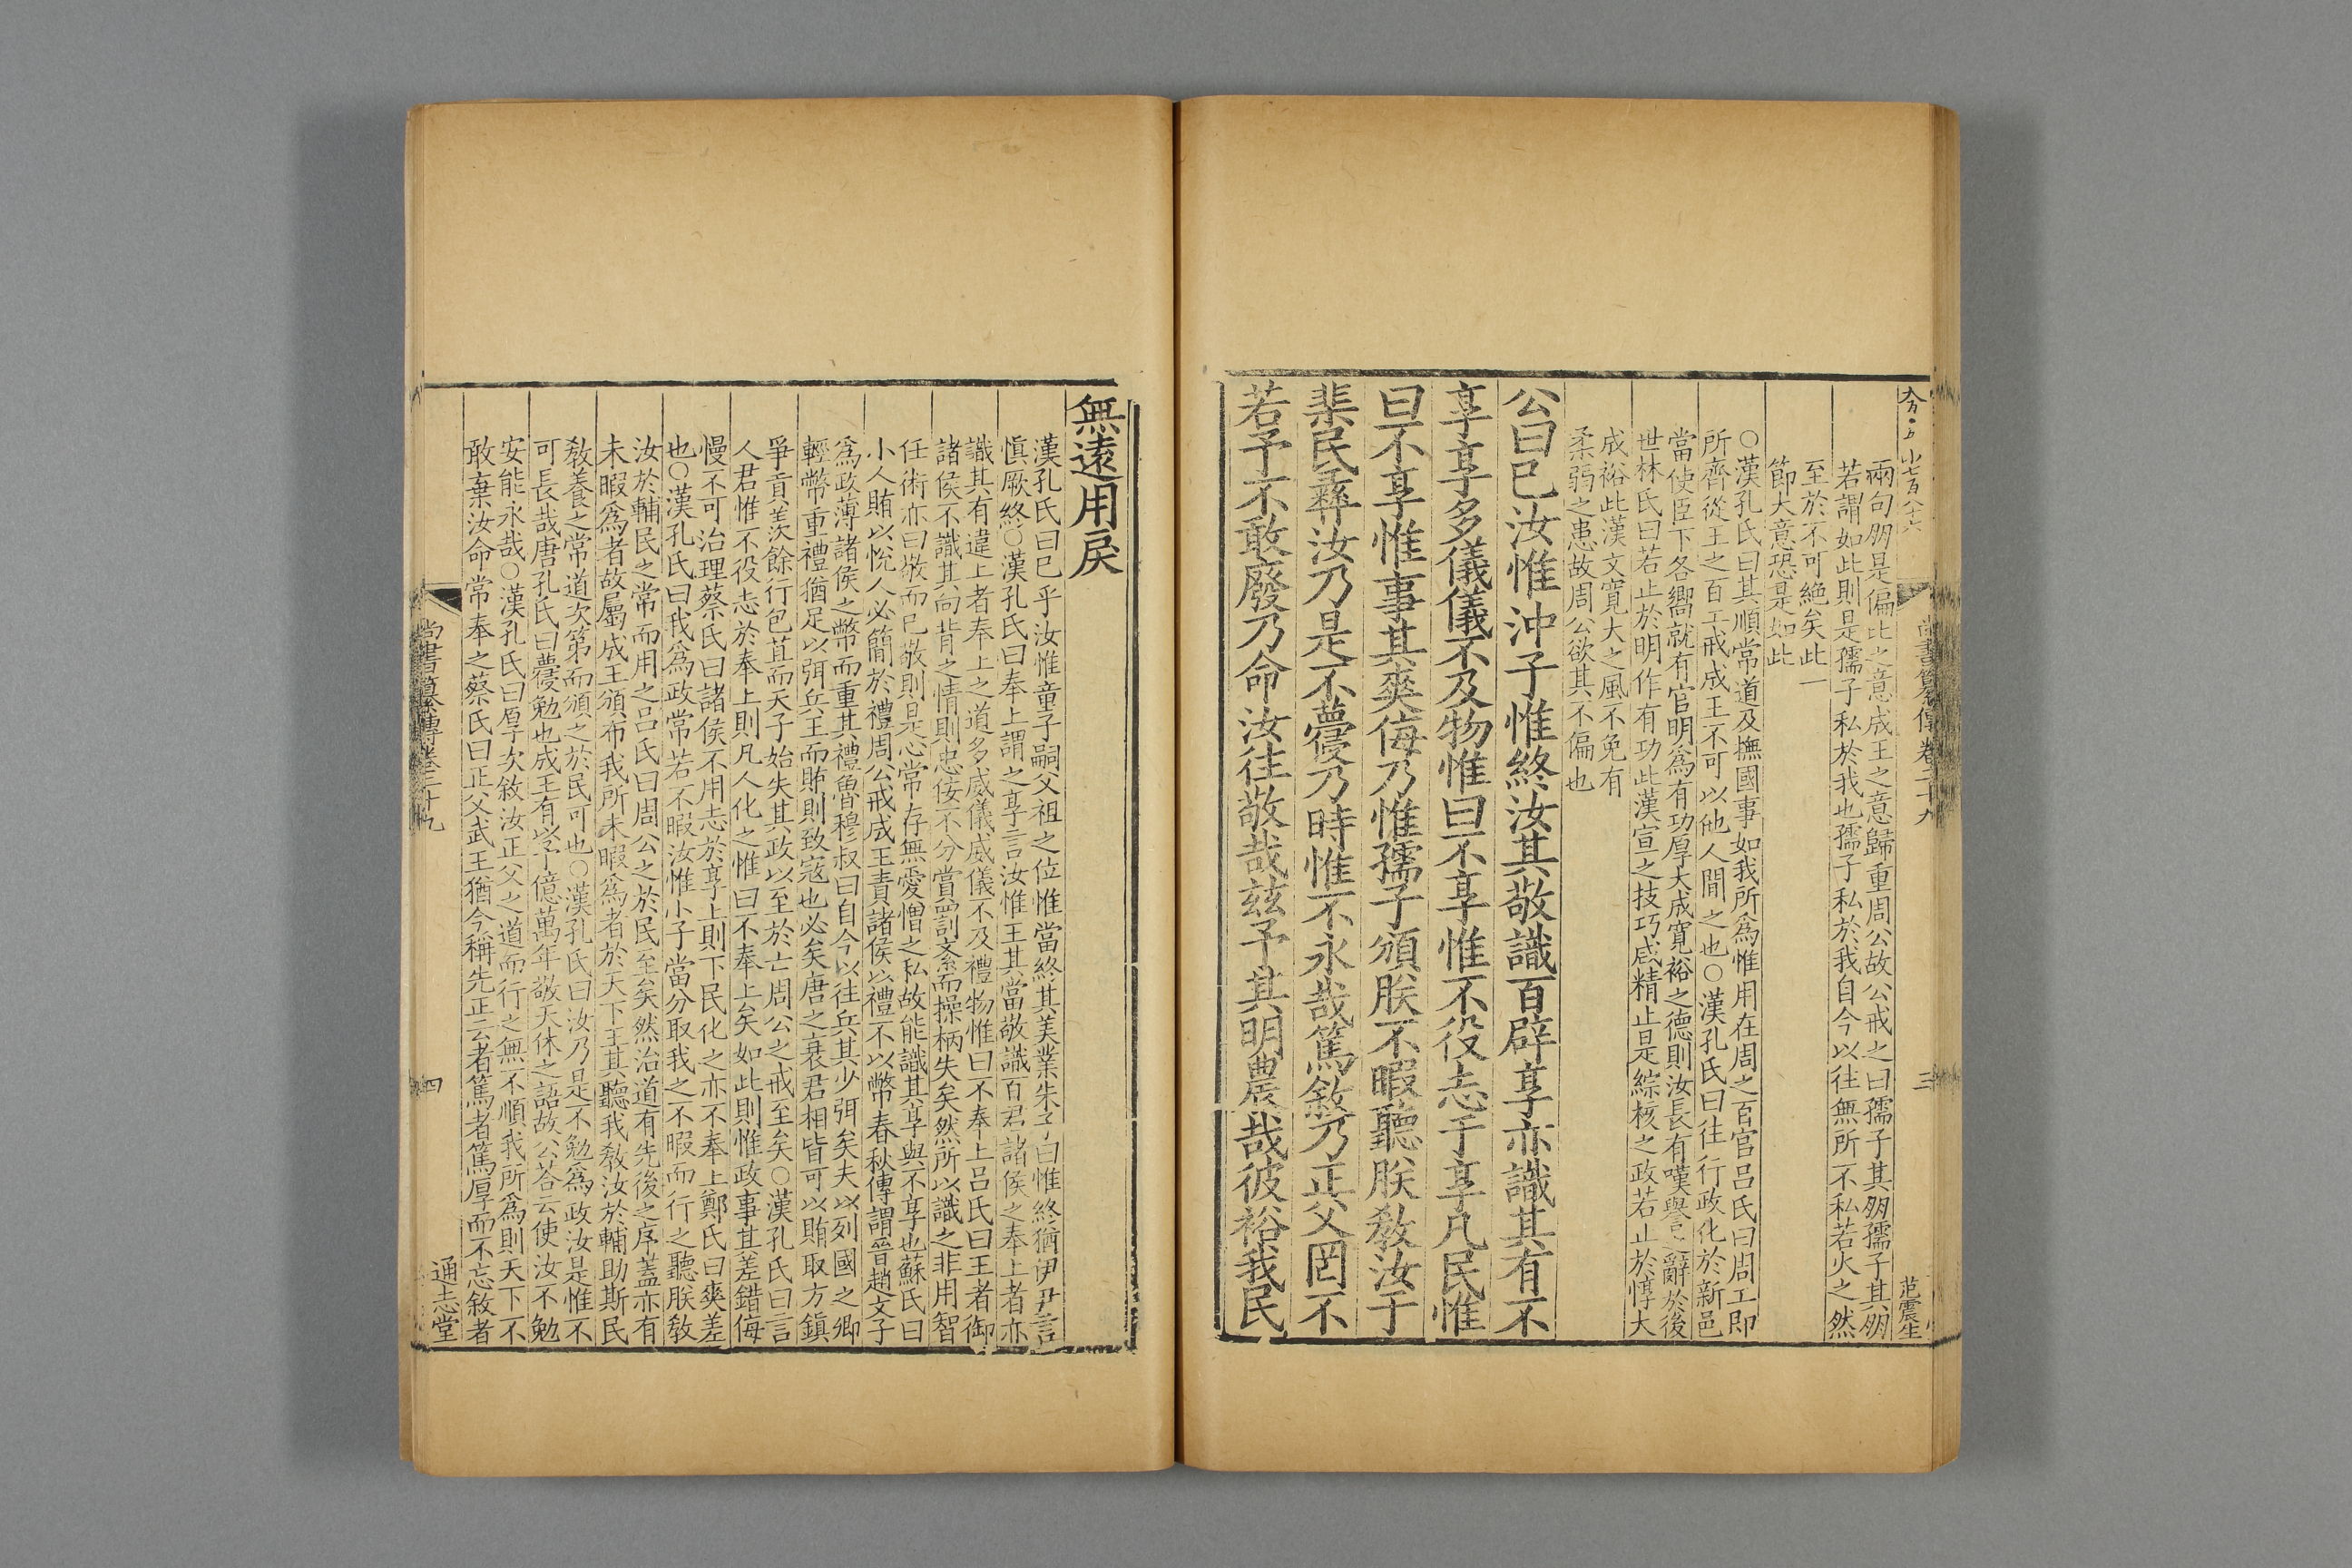 兩句朋是偏比之意成王之意歸重周公故公戒之曰孺子其朋孺子其朋
若謂如此則是孺子私於我也孺子私於我自今以往無所不私若火之然
至於不可絶矣此一
節大意恐是如此
○漢孔氏曰其順常道及撫國事如我所爲惟用在周之百官呂氏曰周工即
所齊從王之百工戒成王不可以他人間之也○漢孔氏曰往行政化於新邑
當使臣下各嚮就有官明爲有功厚大成寛裕之德則汝長有嘆譽之辭於後
世林氏曰若止於明作有功此漢宣之技巧咸精止是綜核之政若止於惇大
成裕此漢文寛大之風不免有
柔弱之患故周公欲其不偏也
公曰已汝惟沖子惟終汝其敬識百辟享亦識其有不
享享多儀儀不及物惟曰不享惟不役志于享凡民惟
曰不享惟事其爽侮乃惟孺子頒朕不暇聽朕敎汝于
棐民彞汝乃是不蘉乃時惟不永哉篤敘乃正父罔不
若予不敢廢乃命汝往敬哉兹予其明農哉彼裕我民
范震生
尚書纂傳卷二十九
三
無遠用戾
漢孔氏曰已乎汝惟童子嗣父祖之位惟當終其美業朱子曰惟終猶伊尹言
愼厥終○漢孔氏曰奉上謂之享言汝惟王其當敬識百君諸侯之奉上者亦
識其有違上者奉上之道多威儀威儀不及禮物惟曰不奉上呂氏曰王者御
諸侯不識其向背之情則忠佞不分賞罰紊而操柄失矣然所以識之非用智
任術亦曰敬而已敬則是心常存無愛憎之私故能識其享與不享也蘇氏曰
小人賄以悅人必簡於禮周公戒成王責諸侯以禮不以幣春秋傳謂晉趙文子
爲政薄諸侯之幣而重其禮魯穆叔曰自今以往兵其少弭矣夫以列國之卿
輕幣重禮猶足以弭兵王而賄則致寇也必矣唐之衰君相皆可以賄取方鎭
爭貢羨餘行苞苴而天子始失其政以至於亡周公之戒至矣○漢孔氏曰言
人君惟不役志於奉上則凡人化之惟曰不奉上矣如此則惟政事其差錯侮
慢不可治理蔡氏曰諸侯不用志於享上則下民化之亦不奉上鄭氏曰爽差
也○漢孔氏曰我爲政常若不暇汝惟小子當分取我之不暇而行之聽朕敎
汝於輔民之常而用之呂氏曰周公之於民至矣然治道有先後之序蓋亦有
未暇爲者故屬成王頒布我所未暇爲者於天下王其聽我敎汝於輔助斯民
敎養之常道次第而頒之於民可也○漢孔氏曰汝乃是不勉爲政汝是惟不
可長哉唐孔氏曰蘉勉也成王有以予億萬年敬天休之語故公荅云使汝不勉
安能永哉○漢孔氏曰厚次敘汝正父之道而行之無不順我所爲則天下不
敢棄汝命常奉之蔡氏曰正父武王猶今稱先正云者篤者篤厚而不忘敘者
尚書纂傳卷二十九
四
通志堂